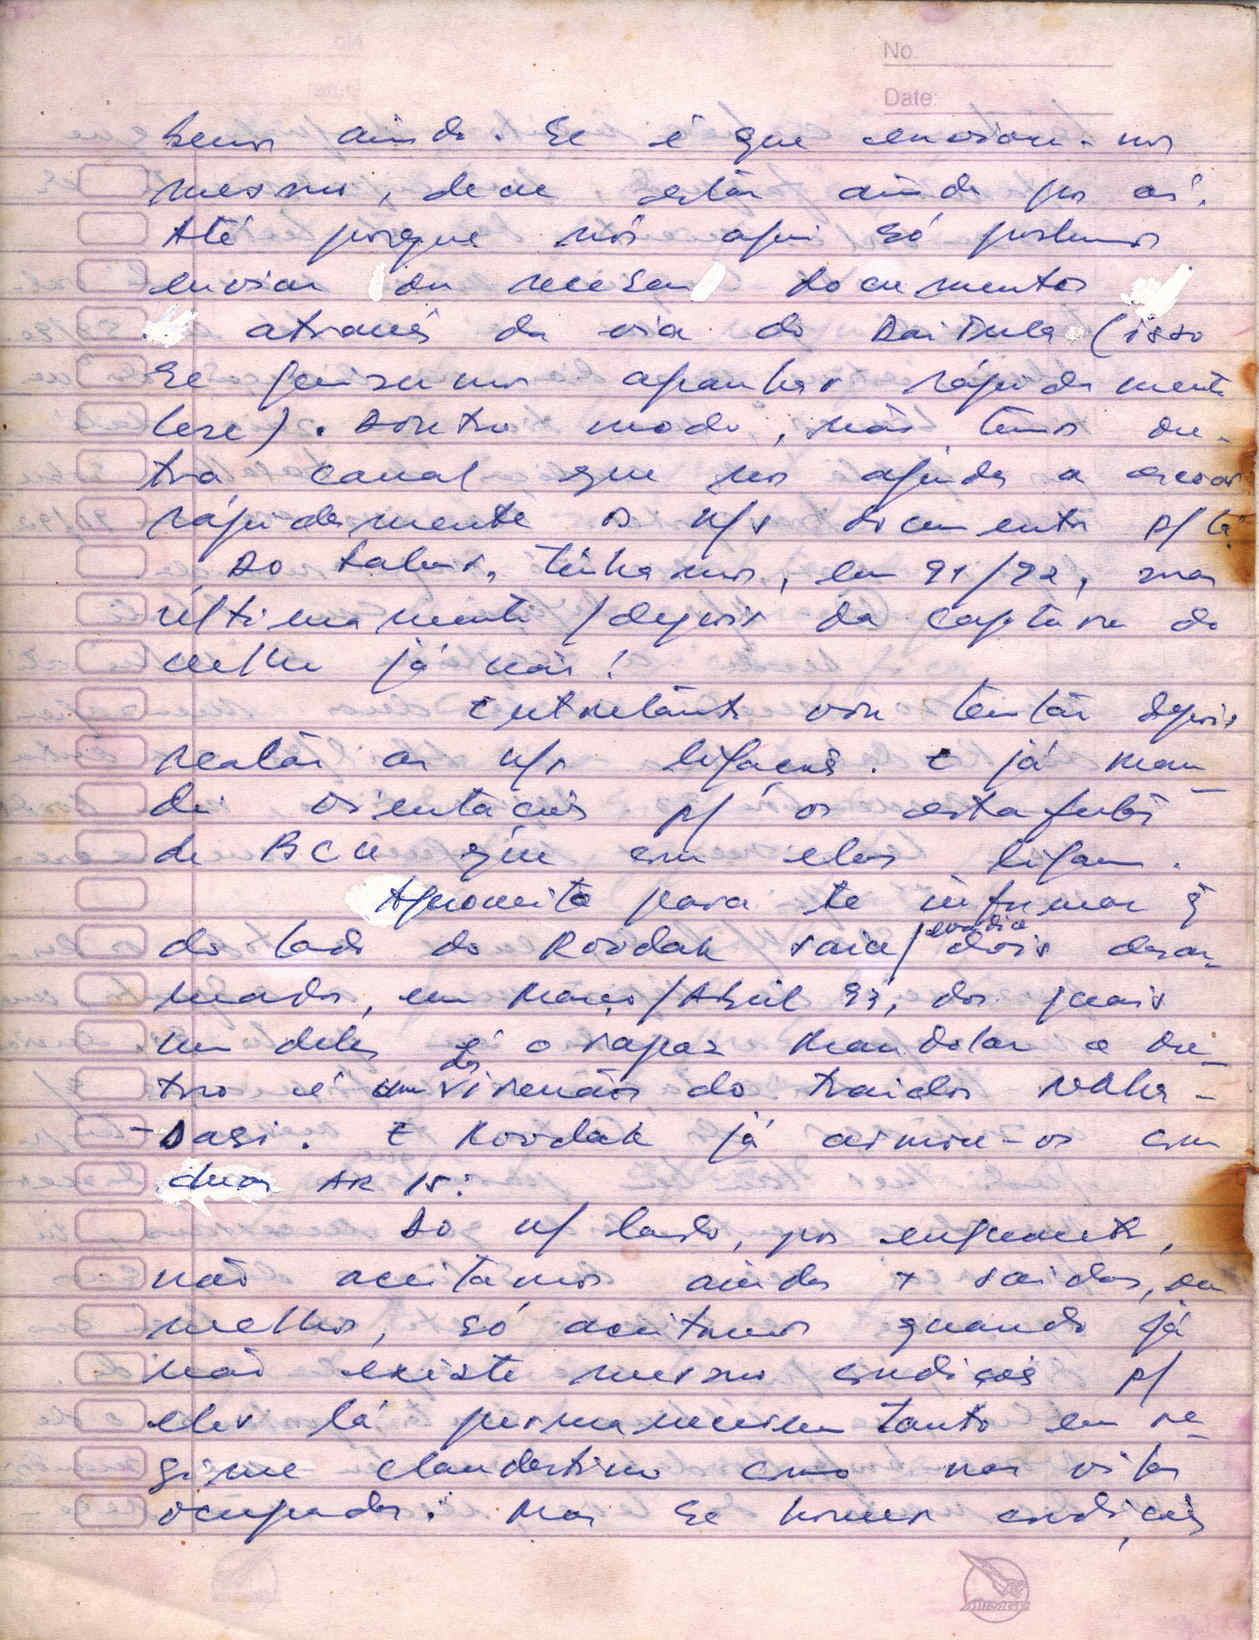 No.
Date:
bemos ainda. Se é que enviou-nos
mesmo, deve estar ainda por aí.
Até porque nós aqui só podemos
enviar ou receber documentos
através da via do DaiTula (isso
se quisermos apanhar rápidamente
esse). Doutro modo, não temos ou-
tro canal que nos ajuda a escoar
rápidamente os n/s documentos p/ lá.
Ao talvez, tínhamos, em 91/92, mas
últimamente/depois da captura do
velho já não!
Entretanto vou tentar depois
reatar as n/s ligações. E já man-
dei orientações p/ os estafetas
de BCU que com eles ligam.
Aproveito para te informar q̃
do lado do Roodak saiu/evadiu dois desar-
mados, em Março/Abril 93, dos quais
um deles é o rapaz Maudolar e ou-
tro é um irmão do traidor
E Roodak já armou-os com
duas AR 15.
Do n/ lado, por enquanto,
não aceitamos ainda + saídas, ou
melhor, só aceitamos quando já
não existe mesmo condições p/
eles lá permanecerem tanto em re-
gime clandestino como nas vilas
ocupadas. Mas se houver condições